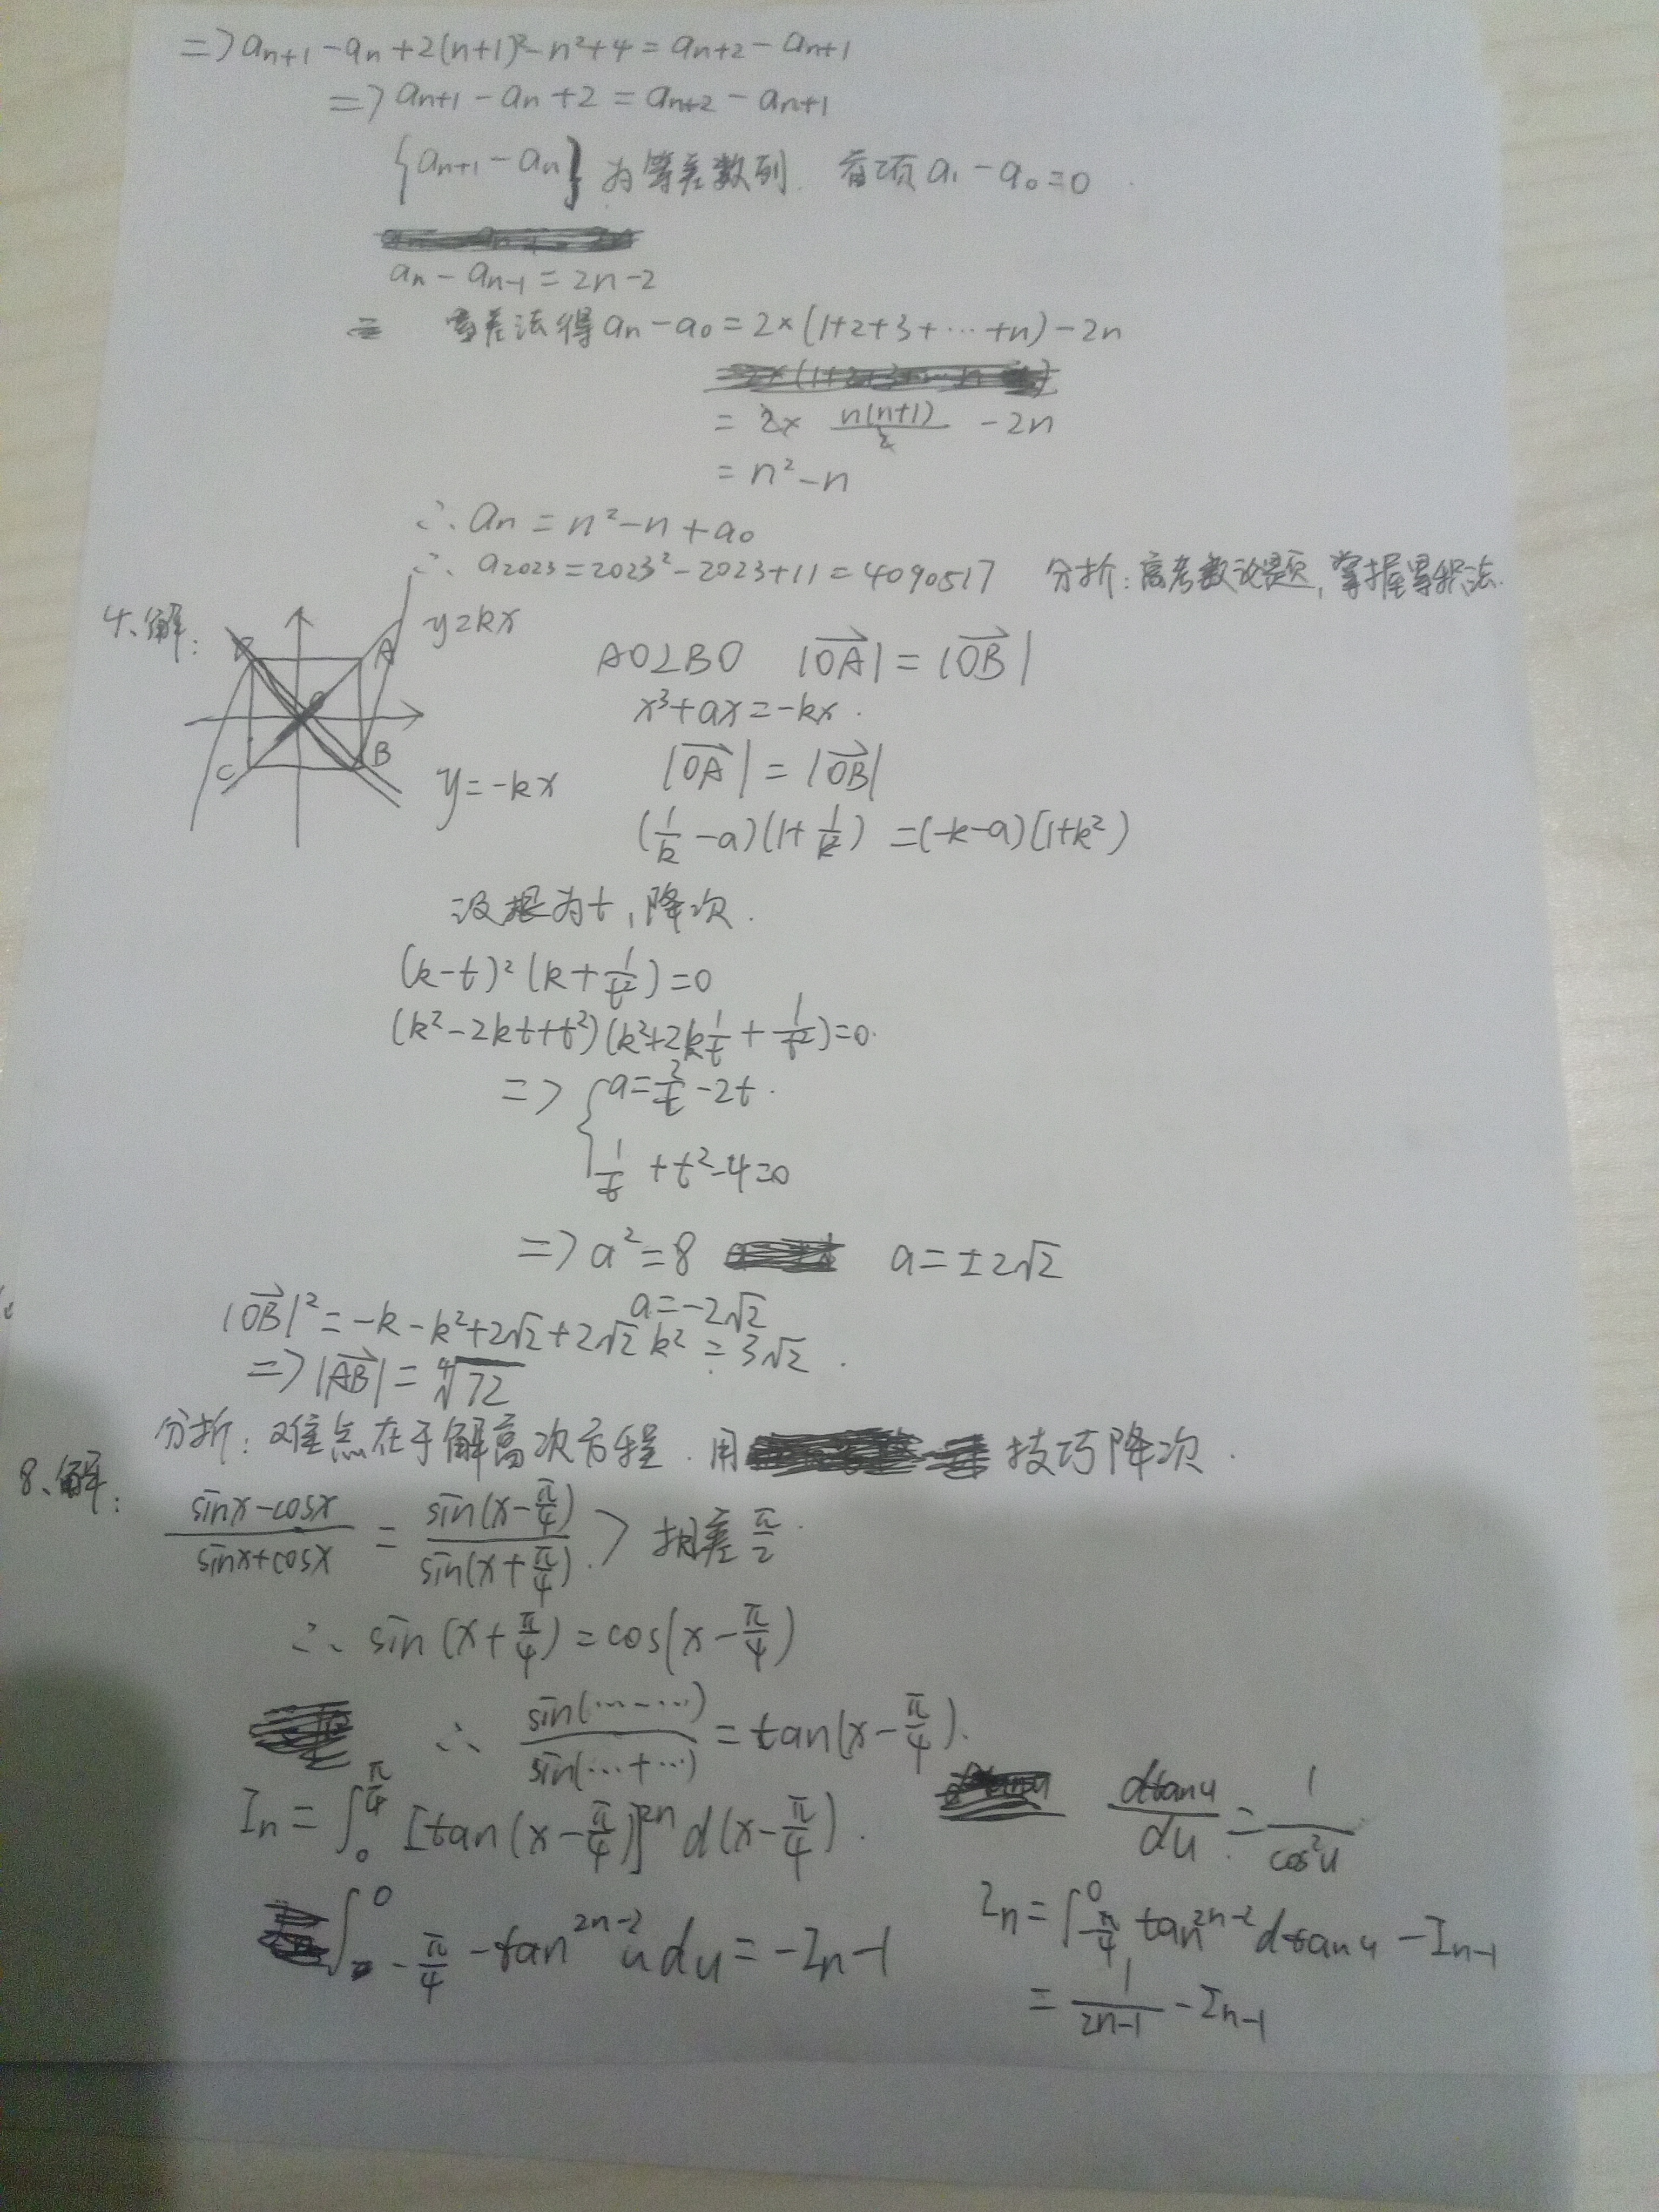 => aₙ₊₁ - aₙ + 2(n+1)² - n² + 4 = aₙ₊₂ - aₙ₊₁
=> aₙ₊₁ - aₙ + 2 = aₙ₊₂ - aₙ₊₁
{aₙ₊₁ - aₙ} 为等差数列. 首项 a₁ - a₀ = 0
aₙ - aₙ₋₁ = 2n-2
差法得 aₙ - a₀ = 2×(1+2+3+⋯+n) - 2n
= 2× n(n+1)/2 - 2n
= n² - n
∴ aₙ = n² - n + a₀
∴ a₂₀₂₃ = 2023² - 2023 + 11 = 4090517 分析: 高考数议题, 掌握累积法.
4、解:
A
B
C
y=kx
y=-kx
AO⊥BO |OA| = |OB|
x³+ax=-kx.
|OA| = |OB|
(1/k - a)(1+1/k²) = (-k-a)(1+k²)
设根为t, 降次.
(k-t)²(k+1/t²)=0
(k²-2kt+t²)(k²+2k1/t+1/t²)=0.
=> { a=2/t-2t.
1/t+t²-4=0
=> a²=8 a=±2√2
a=-2√2
|OB|²=-k-k²+2√2+2√2k²=3√2.
=> |AB| = ∜72
分析: 难点在于解高次方程. 用 技巧降次.
8、解:
(sinx-cosx)/(sinx+cosx) = sin(x-π/4)/sin(x+π/4) > 相差π/2.
∴ sin(x+π/4)=cos(x-π/4)
∴ sin(⋯-⋯)/sin(⋯+⋯) = tan(x-π/4).
Iₙ = ∫₀^(π/4) [tan(x-π/4)]²ⁿ d(x-π/4). dtanu/du = 1/cos²u
∫_(-π/4)^0 -tan²ⁿ⁻²u du = -Iₙ-1
Iₙ = ∫_(-π/4)^0 tan²ⁿ⁻² dtanu - Iₙ₋₁
= 1/(2n-1) - Iₙ₋₁